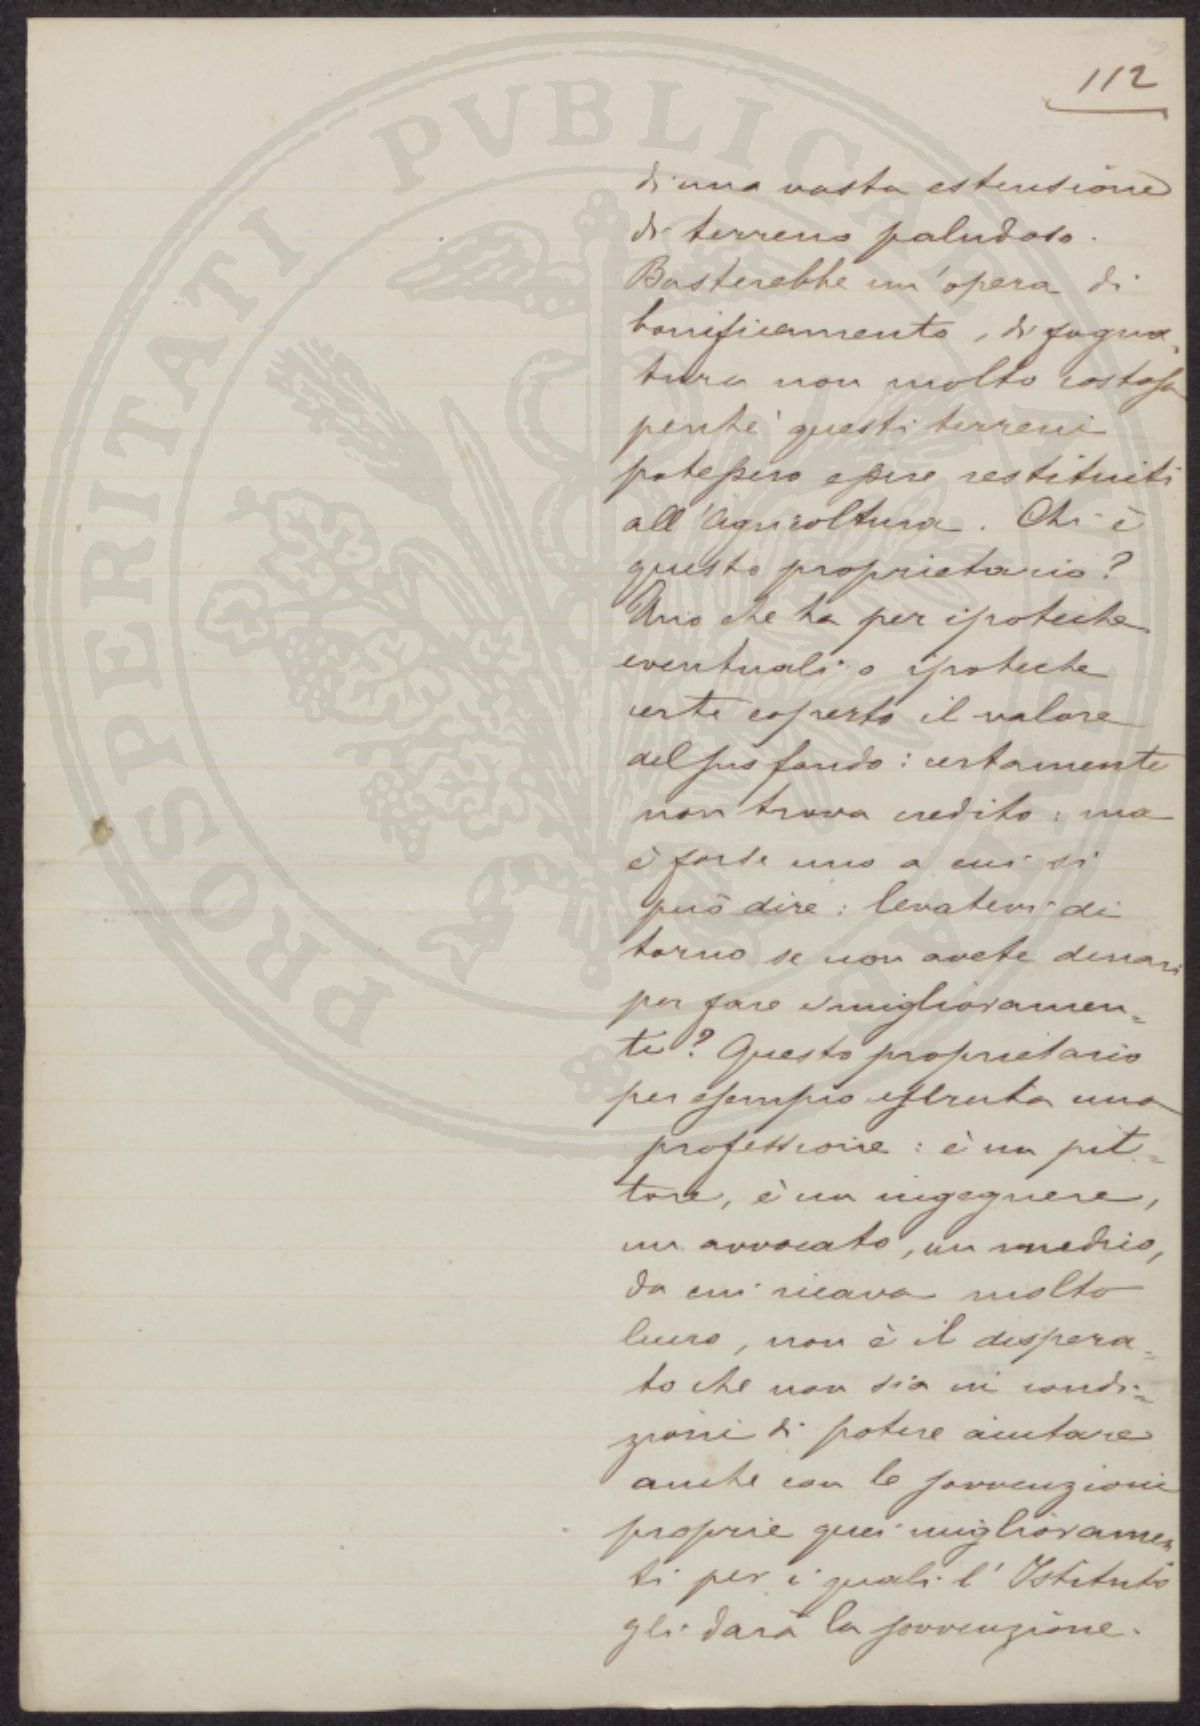 112
di una vasta estensione
di terreno paludoso.
Basterebbe un'opera di
bonificamento, di fogna=
tura non molto costosa
perchè questi terreni
potessero essere restituiti
all'agricoltura. Chi è
questo proprietario?
Uno che ha per ipoteche
eventuali o ipoteche
certe coperto il valore
del suo fondo: certamente
non trova credito: ma
è forse uno a cui si
può dire: levatevi di
torno se non avete denari
per fare i miglioramen=
ti? Questo proprietario
per esempio esercita una
professione: è un pit=
tore, è un ingegnere,
un avvocato, un medico,
da cui ricava molto
lucro, non è il dispera=
to che non sia in condi=
zioni di potere aiutare
anche con le sovvenzioni
proprie quei miglioramen
ti per i quali l'Istituto
gli darà la sovvenzione.
PROSPERITATI PVBLICAE